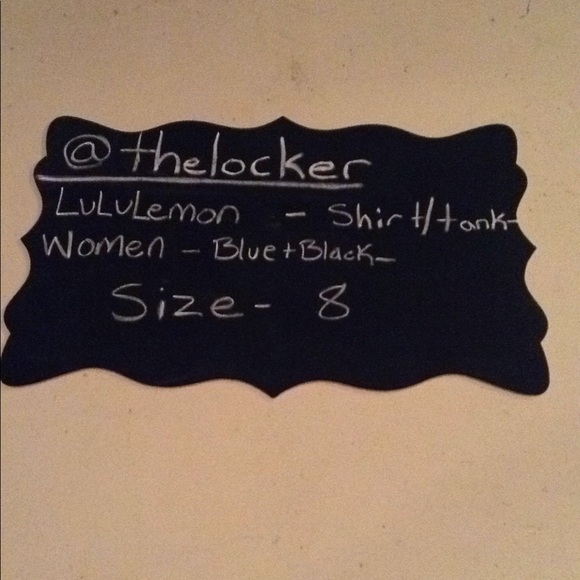 @thelocker
LuLuLemon - Shirt/tank-
Women - Blue+Black-
Size- 8